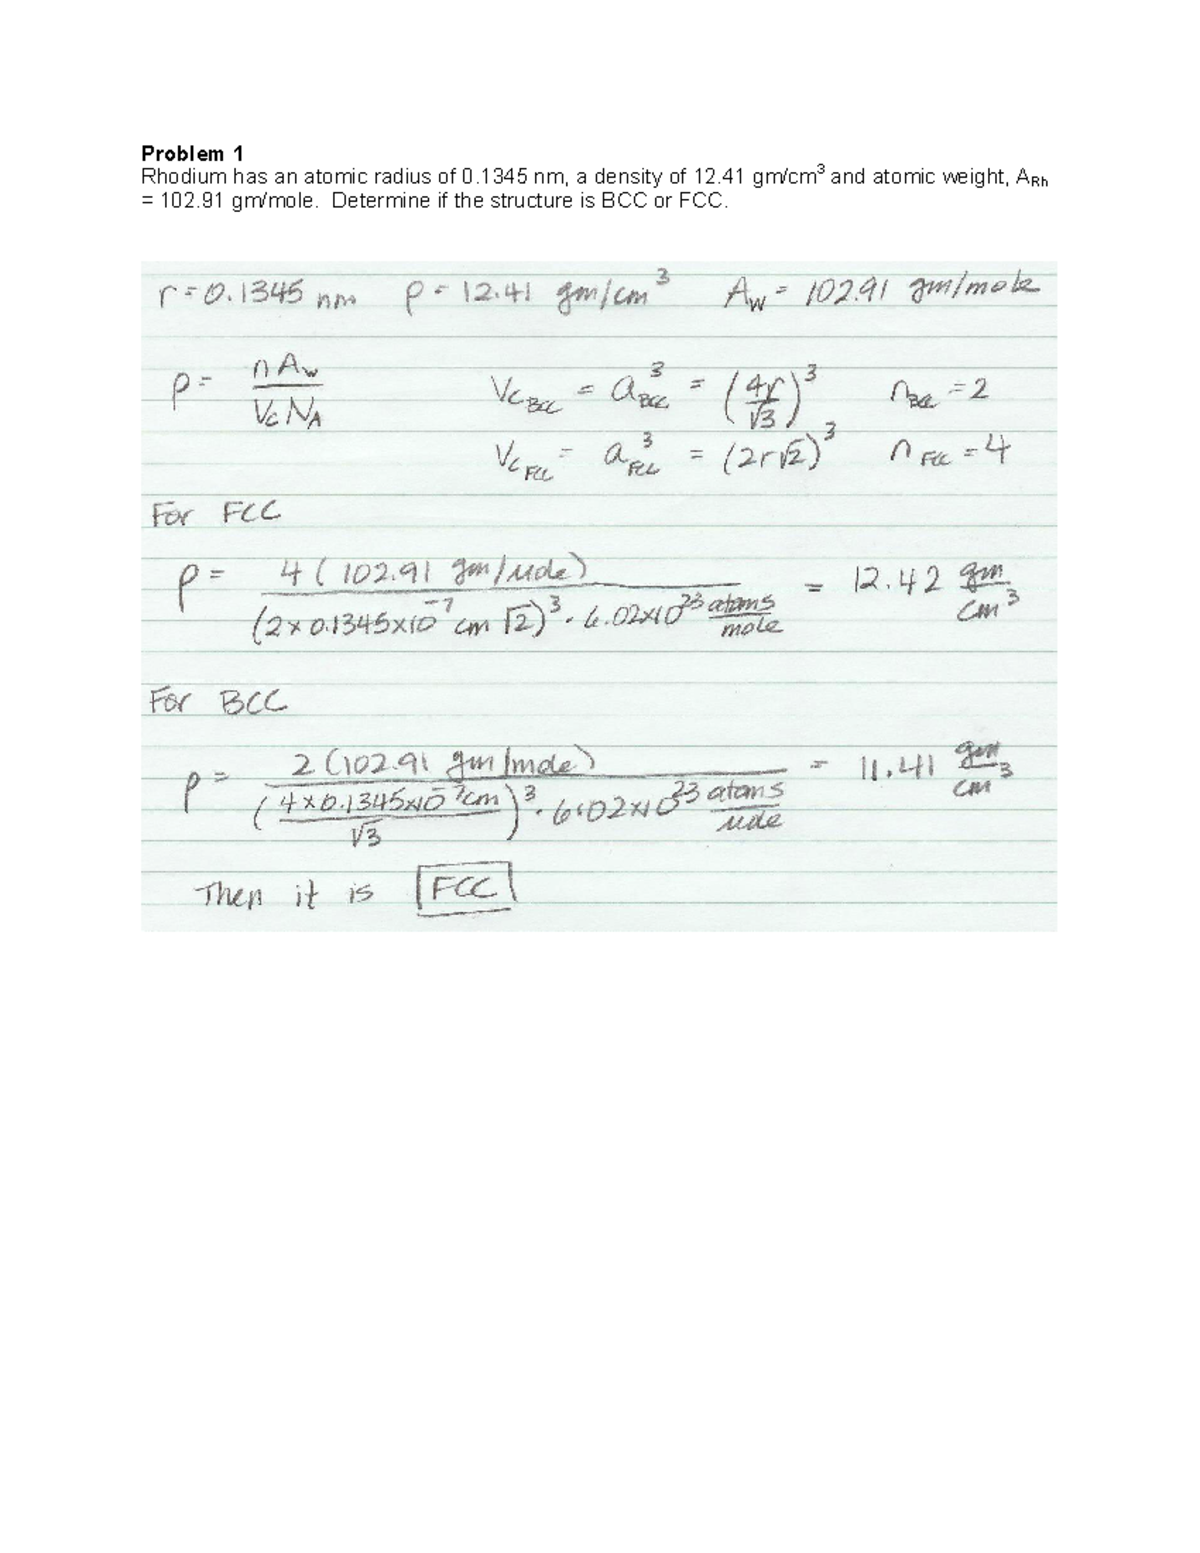 Problem 1
Rhodium has an atomic radius of 0.1345 nm, a density of 12.41 gm/cm³ and atomic weight, A_Rh
= 102.91 gm/mole. Determine if the structure is BCC or FCC.
r = 0.1345 nm ρ = 12.41 gm/cm³ A_W = 102.91 gm/mole
ρ = n A_W / (V_C N_A) V_C BCC = a_BCC³ = (4r/√3)³ n_BCC = 2
V_C FCC = a_FCC³ = (2r√2)³ n_FCC = 4
For FCC
ρ = 4 (102.91 gm/mole) / ((2 × 0.1345×10⁻⁷ cm √2)³ · 6.02×10²³ atoms/mole) = 12.42 gm/cm³
For BCC
ρ = 2 (102.91 gm/mole) / ((4 × 0.1345×10⁻⁷ cm / √3)³ · 6.02×10²³ atoms/mole) = 11.41 gm/cm³
Then it is FCC